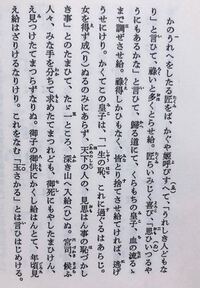 かのうれへをしたる匠をば、かぐや姫呼びすへて、「うれしき人どもな
り」と言ひて、祿いと多くとらせ給。匠らいみじく喜び、「思ひつるや
うにもあるかな」と言ひて、歸る道にて、くらもちの皇子、血の流るゝ
まで調ぜさせ給。祿得しかひもなく、皆とり捨てさせ給てければ、逃げ
うせにけり。かくてこの皇子は、「一生の恥、これに過ぐるはあらじ。
女を得ず成(り)ぬるのみにあらず、天下の人の、見思はん事の恥づかし
き事」とのたまひて、たゞ一ところ、深き山へ入給(ひ)ぬ。宮司、候ふ
人々、みな手を分ちて求めたてまつれども、御死にもやしたまひけん、
え見つけたてまつらずなりぬ。御子の御供にかくし給はんとて、年頃見
え給はざりけるなりけり。これをなむ「玉さかる」とは言ひはじめける。